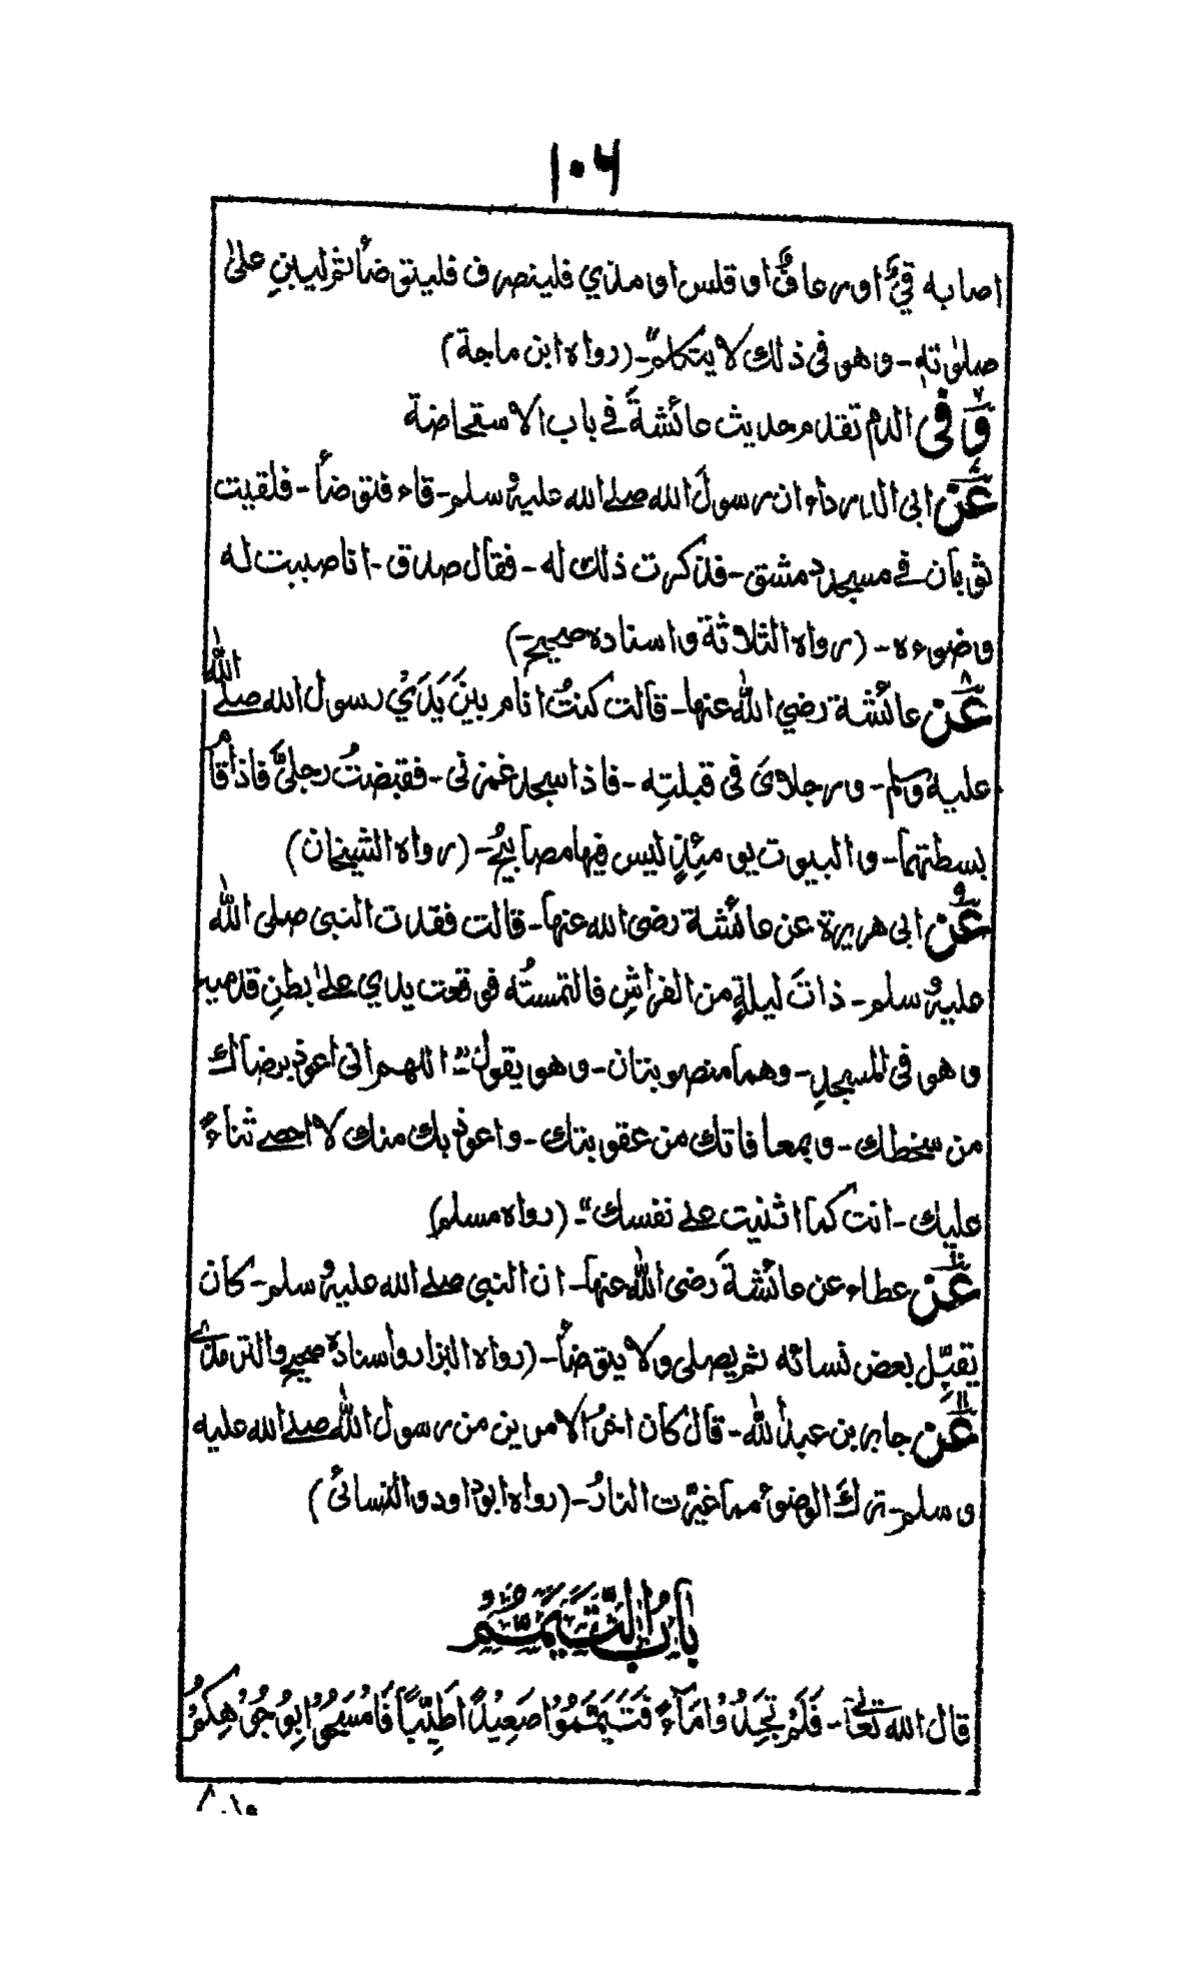 ۱۰۶
اصابه قيءٌ اورعافٌ او قلس او مذي فلينصرف فليتوضأ ثم ليبنِ علىٰ
صلوٰتهٖ - وهو فى ذلك لا يتكلم" - (رواه ابن ماجة)
۶ وَفى الدم تقدم حديث عائشةَ فے باب الاستحاضة
۷ عَن ابى الدرداء ان رسولَ الله صلے الله عليه وسلم - قاء فتوضأ - فلقيت
ثوبان فے مسجد دمشق - فذكرت ذلك له - فقال صدق - انا صببت له
وضوءه - (رواه الثلاثة واسناده صحيح -)
۸ عَن عائشة رضي اللّٰه عنها - قالت كنتُ انام بينَ يَدَيْ رسول الله صلے اللّٰه
عليه وسلم - ورجلاىَ فى قبلتِه - فاذا سجد غمزنى - فقبضتُ رجلىَّ فاذا قام
بسطتهما - والبيوت يومئِذٍ ليس فيها مصابيحُ - (رواه الشيخان)
۹ عَن ابى هريرة عن عائشة رضى الله عنها - قالت فقدت النبى صلى اللّٰه
عليه وسلم - ذاتَ ليلةٍ من الفراشِ فالتمستُه فوقعت يدي علےٰ بطنِ قدميه
وهو فى المسجدِ - وهما منصوبتان - وهو يقول "اللهم انى اعوذ برضاك
من سخطك - وبمعافاتك من عقوبتك - واعوذ بك منك لا احصے ثناءً
عليك - انت كما اثنيت علے نفسك" - (رواه مسلم)
۱۰ عَن عطاء عن عائشةَ رضى اللّٰه عنها - ان النبى صلے الله عليه وسلم - كان
يقبّل بعض نسائه ثم يصلى ولا يتوضأ - (رواه البزار واسناده صحيح والترمذے)
۱۱ عَن جابر بن عبد اللّٰه - قال كان اخر الامرين من رسول اللّٰه صلے الله عليه
وسلم - تركَ الوضوء مما غيّرت النارُ - (رواه ابوداود والنسائى)
بَابُ التَّيَمُّمِ
قال الله تعالىٰ - فَلَمْ تَجِدُوْا مَآءً فَتَيَمَّمُوْا صَعِيْدًا طَيِّبًا فَامْسَحُوْا بِوُجُوْهِكُمْ